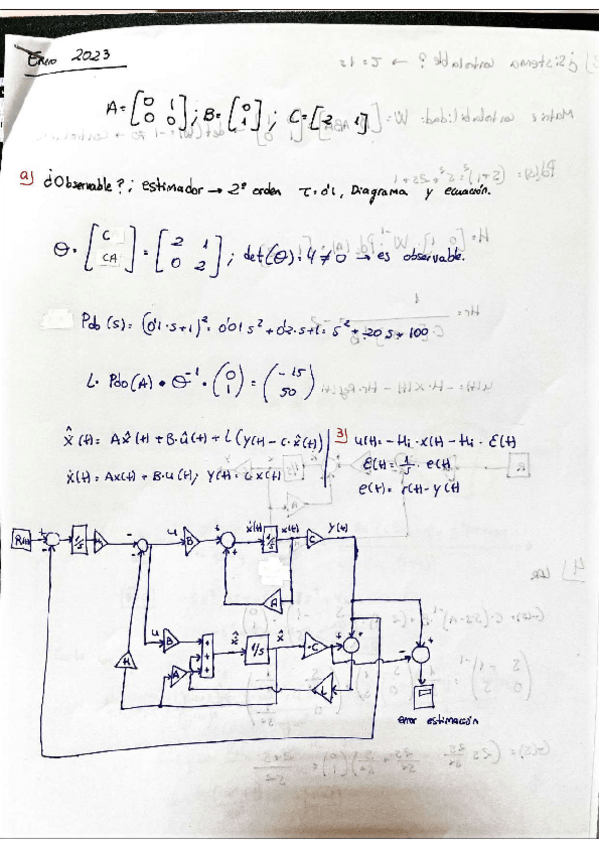 Enero 2023
A = [0 1; 0 0]; B = [0; 1]; C = [2 1]
a) ¿Observable?; estimador → 2º orden τ = 0'1, Diagrama y ecuación.
Θ = [C; CA] = [2 1; 0 2]; det(Θ) = 4 ≠ 0 → es observable.
Pdo(s) = (0'1·s+1)² = 0'01s² + 0'2·s+1 = s² + 20s + 100
L = Pdo(A) · Θ⁻¹ · (0; 1) = (-15; 50)
x̂̇(t) = Ax̂(t) + B·û(t) + L(y(t) - C·x̂(t))
ẋ(t) = Ax(t) + B·u(t); y(t) = Cx(t)
3) u(t) = -Hi · x(t) - Hi · Ɛ(t)
Ɛ(t) = 1/s · e(t)
e(t) = r(t) - y(t)
R(t) + - 1/s - - u B + + ẋ(t) 1/s x(t) C y(t)
A
u B + + + x̂̇ 1/s x̂ -C + + - +
H A L
error estimación